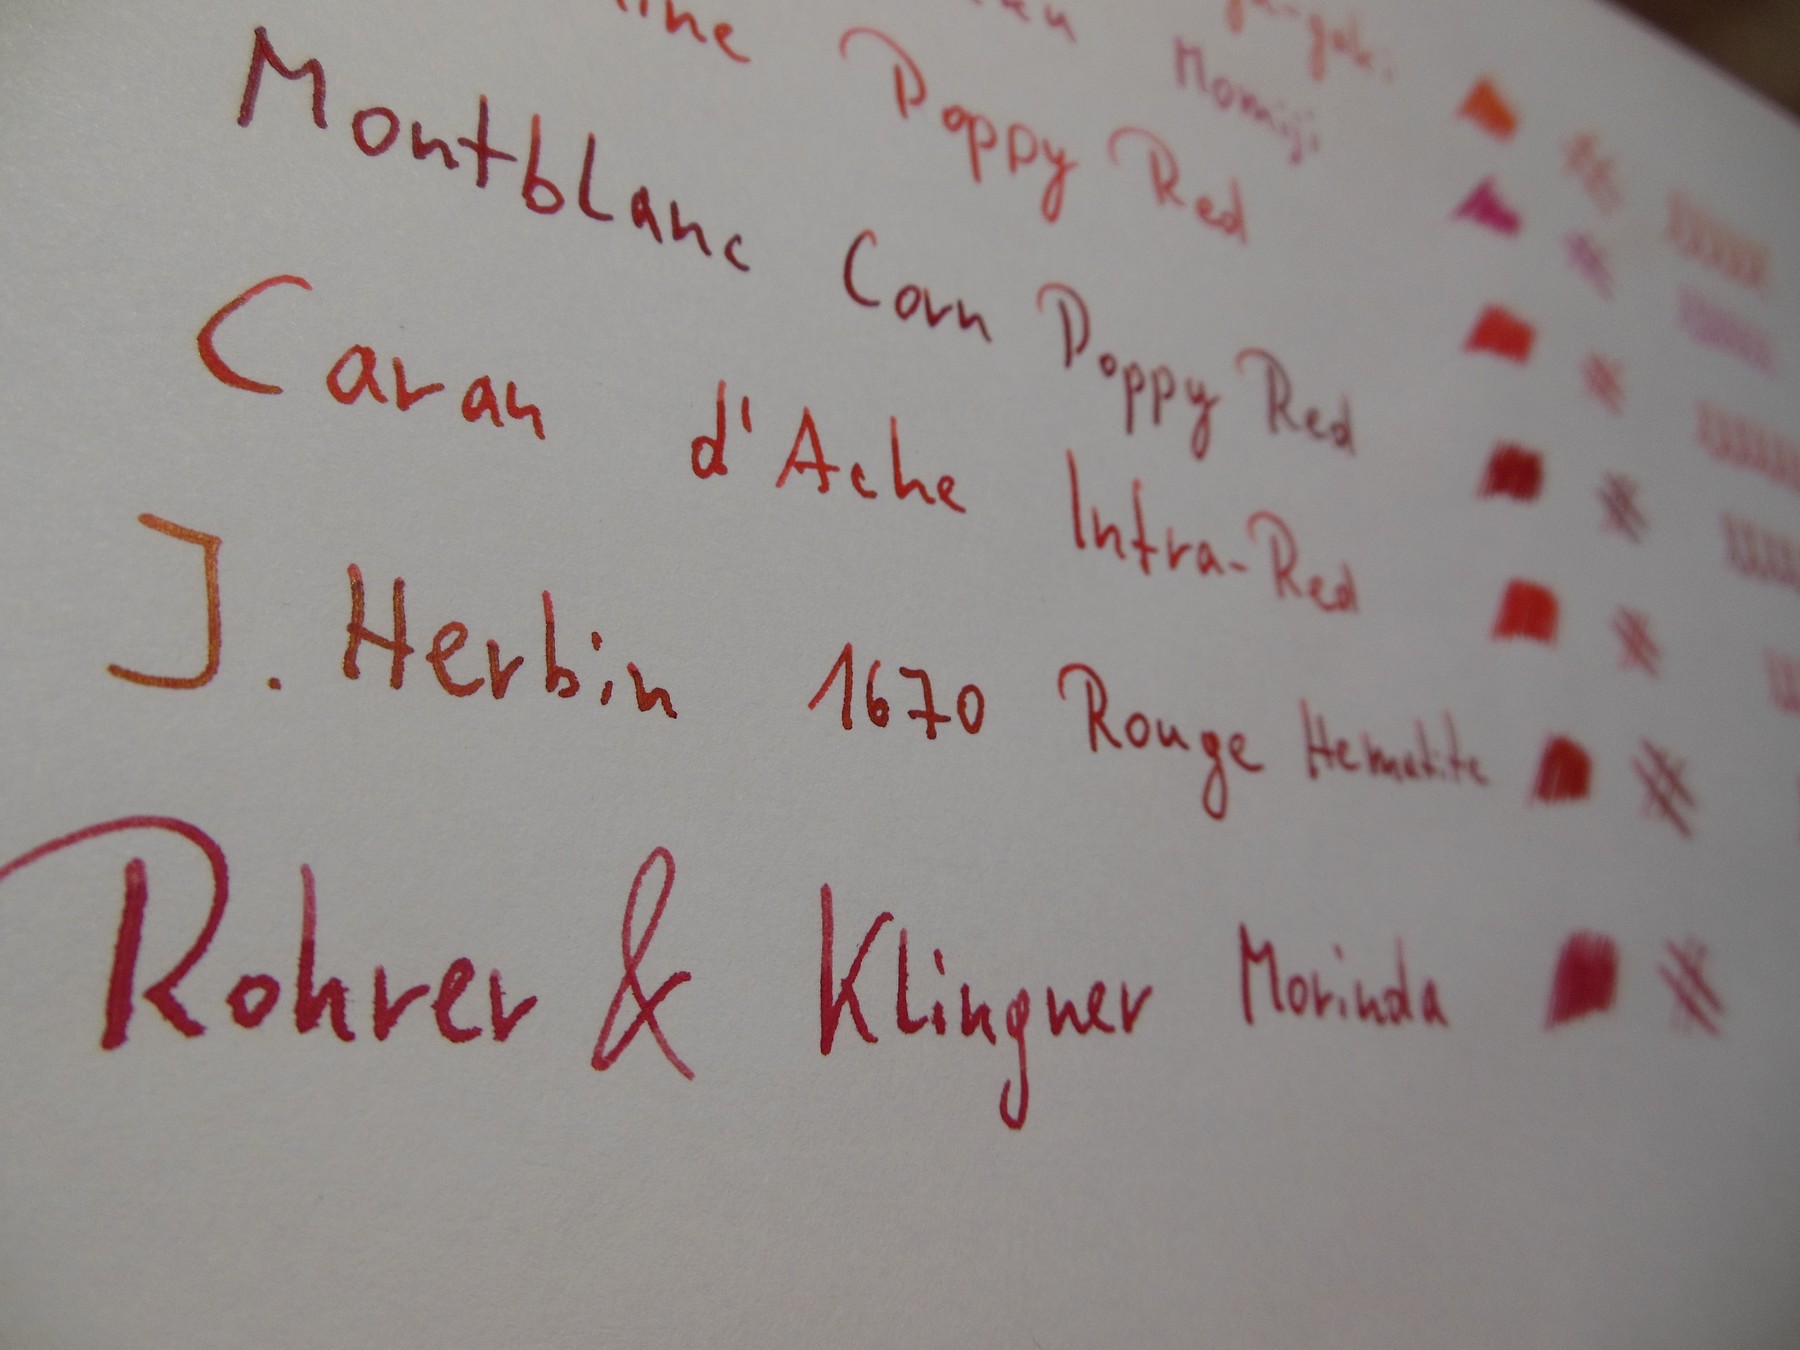 Momiji
Poppy Red
Montblanc Corn Poppy Red
Caran d'Ache Infra-Red
J. Herbin 1670 Rouge Hematite
Rohrer & Klingner Morinda